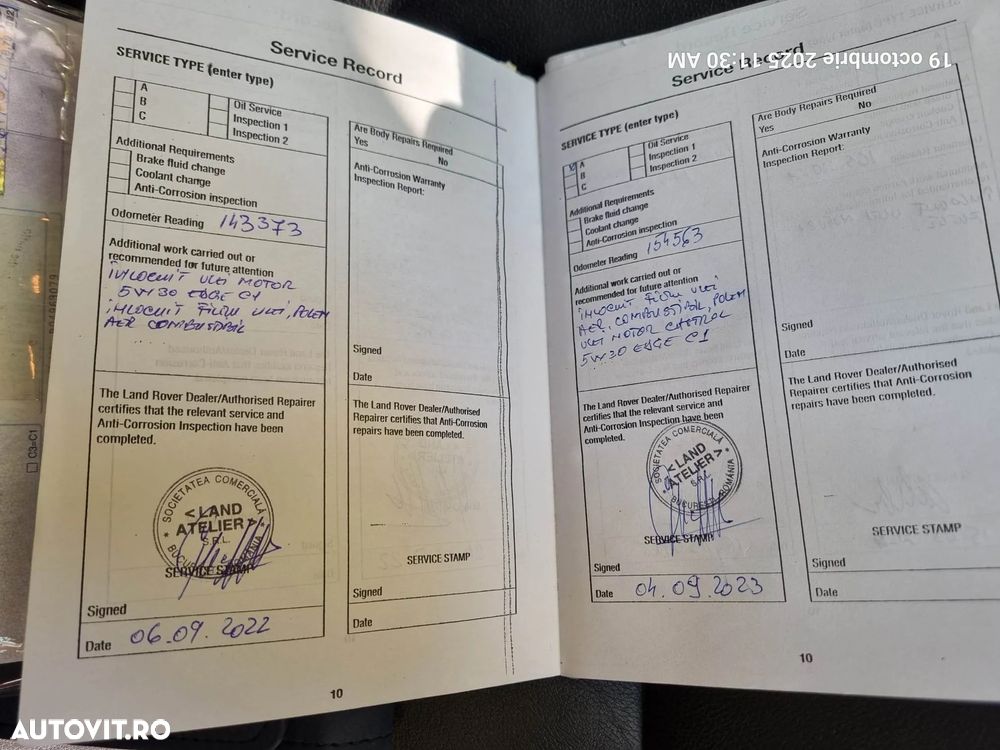 Service Record
SERVICE TYPE (enter type)
A
B
C
Oil Service
Inspection 1
Inspection 2
Additional Requirements
Brake fluid change
Coolant change
Anti-Corrosion inspection
Odometer Reading 143373
Additional work carried out or
recommended for future attention
ÎNLOCUIT ULEI MOTOR
5W30 EDGE C1
ÎNLOCUIT FILTRU ULEI, POLEN
AER COMBUSTIBIL
The Land Rover Dealer/Authorised Repairer
certifies that the relevant service and
Anti-Corrosion Inspection have been
completed.
SOCIETATEA COMERCIALĂ
<LAND
ATELIER>
S.R.L.
BUCUREȘTI ROMÂNIA
SERVICE STAMP
Signed
Date 06.09.2022
Are Body Repairs Required
Yes No
Anti-Corrosion Warranty
Inspection Report:
Signed
Date
The Land Rover Dealer/Authorised
Repairer certifies that Anti-Corrosion
repairs have been completed.
SERVICE STAMP
Signed
Date
10
Service Record
SERVICE TYPE (enter type)
A
B
C
Oil Service
Inspection 1
Inspection 2
Additional Requirements
Brake fluid change
Coolant change
Anti-Corrosion inspection
Odometer Reading 154563
Additional work carried out or
recommended for future attention
ÎNLOCUIT FILTRU ULEI
AER, COMBUSTIBIL, POLEN
ULEI MOTOR CASTROL
5W30 EDGE C1
The Land Rover Dealer/Authorised Repairer
certifies that the relevant service and
Anti-Corrosion Inspection have been
completed.
SOCIETATEA COMERCIALĂ
<LAND
ATELIER>
S.R.L.
BUCUREȘTI ROMÂNIA
SERVICE STAMP
Signed
Date 04.09.2023
Are Body Repairs Required
Yes No
Anti-Corrosion Warranty
Inspection Report:
Signed
Date
The Land Rover Dealer/Authorised
Repairer certifies that Anti-Corrosion
repairs have been completed.
SERVICE STAMP
Signed
Date
10
19 octombrie 2025 11:30 AM
C3=C1
AUTOVIT.RO